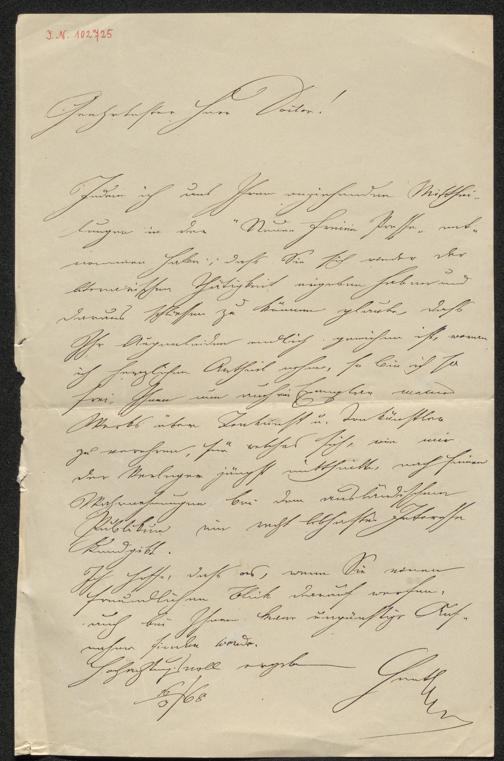 J.N. 102725
Geehrtester Herr Doctor!
Indem ich aus Ihren anziehenden Mitthei-
lungen in der "Neuen freien Presse" ent-
nommen habe, daß Sie sich wieder der
literarischen Thätigkeit ergeben haben und
daraus schließen zu können glaube, daß
Ihr Augenleiden endlich gewichen ist, woran
ich herzlichen Antheil nehme, so bin ich so
frei Ihnen nun auch ein Exemplar meines
Werks über Tonkunst u. Tonkünstler
zu verehren, für welches sich, wie mir
der Verleger jüngst mittheilte, nach seinen
Wahrnehmungen bei dem ausländischen
Publikum ein recht lebhaftes Interesse
kundgibt.
Ich hoffe, daß es, wenn Sie einen
freundlichen Blick darauf werfen,
auch bei Ihnen keine ungünstige Auf-
nahme finden werde.
Hochachtungsvoll ergeben
/68